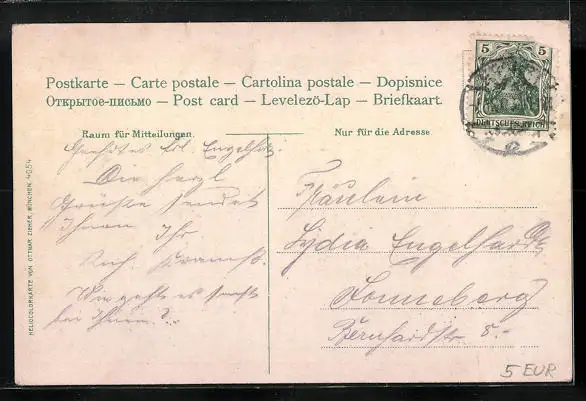 Postkarte — Carte postale — Cartolina postale — Dopisnice
Открытое-письмо — Post card — Levelező-Lap — Briefkaart.
Raum für Mitteilungen.
Nur für die Adresse.
5 5
DEUTSCHES REICH
Geehrtes Frl. Engelhdt.
Die herzl.
Grüsse sendet
Ihnen Ihr
Rich.
Wie geht es sonst
bei Ihnen?
Fräulein
Lydia Engelhardt
Sonneberg
Bernhardstr 8.
HELIOCOLORKARTE VON OTTMAR ZIEHER, MÜNCHEN. 4054
5 EUR